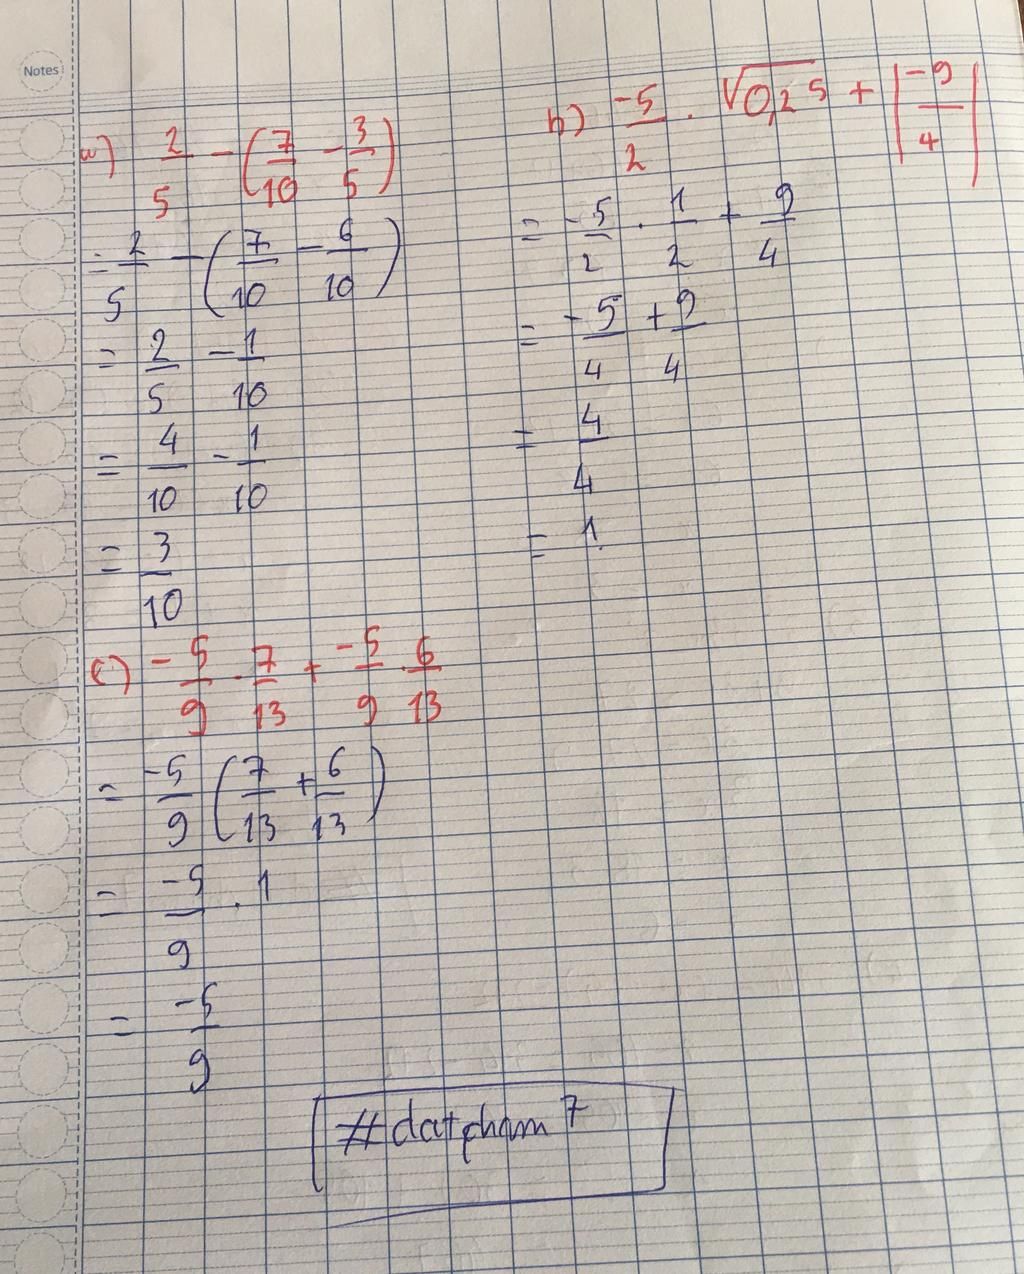 Notes
a) 2/5 - (7/10 - 3/5)
= 2/5 - (7/10 - 6/10)
= 2/5 - 1/10
= 4/10 - 1/10
= 3/10
b) -5/2 . √0,25 + |-9/4|
= -5/2 . 1/2 + 9/4
= -5/4 + 9/4
= 4/4
= 1.
c) -5/9 . 7/13 + -5/9 . 6/13
= -5/9 (7/13 + 6/13)
= -5/9 . 1
= -5/9
#datpham7